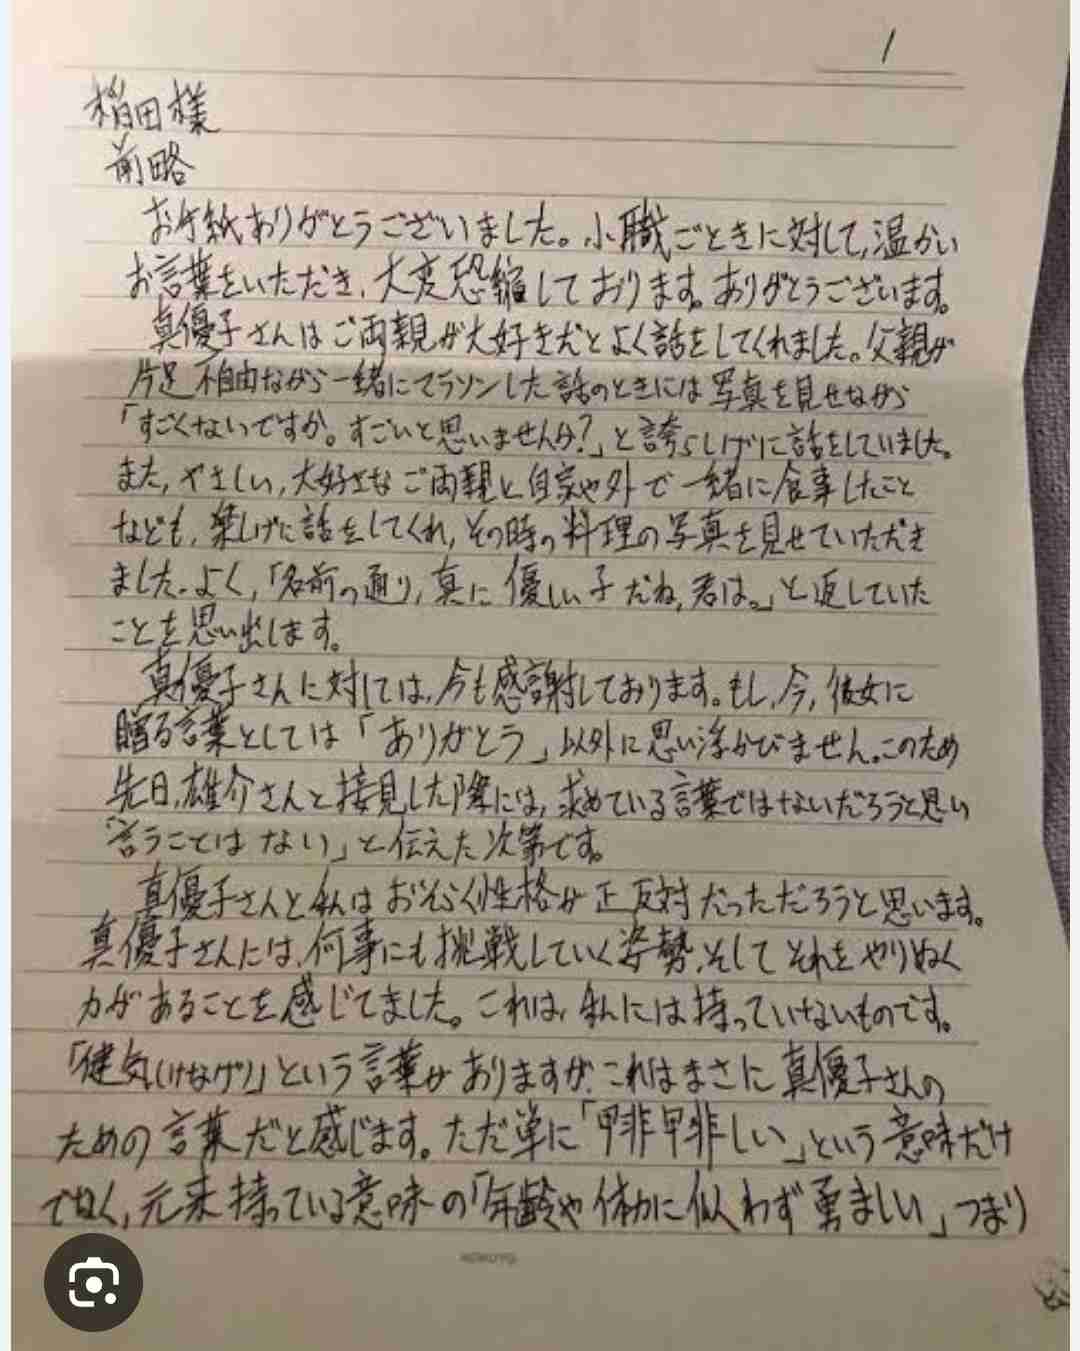 1
稲田様
前略
お手紙ありがとうございました。小職ごときに対して、温かい
お言葉をいただき、大変恐縮しております。ありがとうございます。
真優子さんはご両親が大好きだとよく話をしてくれました。父親が
片足不自由ながら一緒にマラソンした話のときには写真を見せながら
「すごくないですか。すごいと思いませんか?」と誇らしげに話をしていました。
また、やさしい、大好きなご両親と自宅や外で一緒に食事したこと
なども、楽しげに話をしてくれ、その時の料理の写真を見せていただき
ました。よく、「名前の通り、真に優しい子だね、君は。」と返していた
ことを思い出します。
真優子さんに対しては、今も感謝しております。もし、今、彼女に
贈る言葉としては「ありがとう」以外に思い浮かびません。このため
先日、雄介さんと接見した際には、求めている言葉ではないだろうと思い
「言うことはない」と伝えた次第です。
真優子さんと私はおそらく性格が正反対だっただろうと思います。
真優子さんには、何事にも挑戦していく姿勢、そしてそれをやりぬく
力があることを感じてました。これは、私には持っていないものです。
「健気(けなげ)」という言葉がありますが、これはまさに真優子さんの
ための言葉だと感じます。ただ単に「甲斐甲斐しい」という意味だけ
でなく、元来持っている意味の「年齢や体力に似わず勇ましい」つまり
KOKUYO